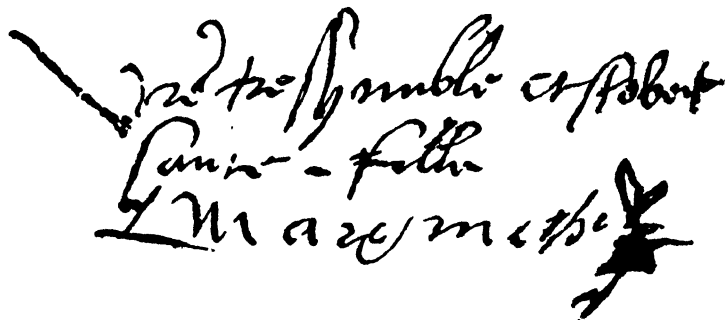 Vre treshumble et tsobeis
sante - fille
Marguerite